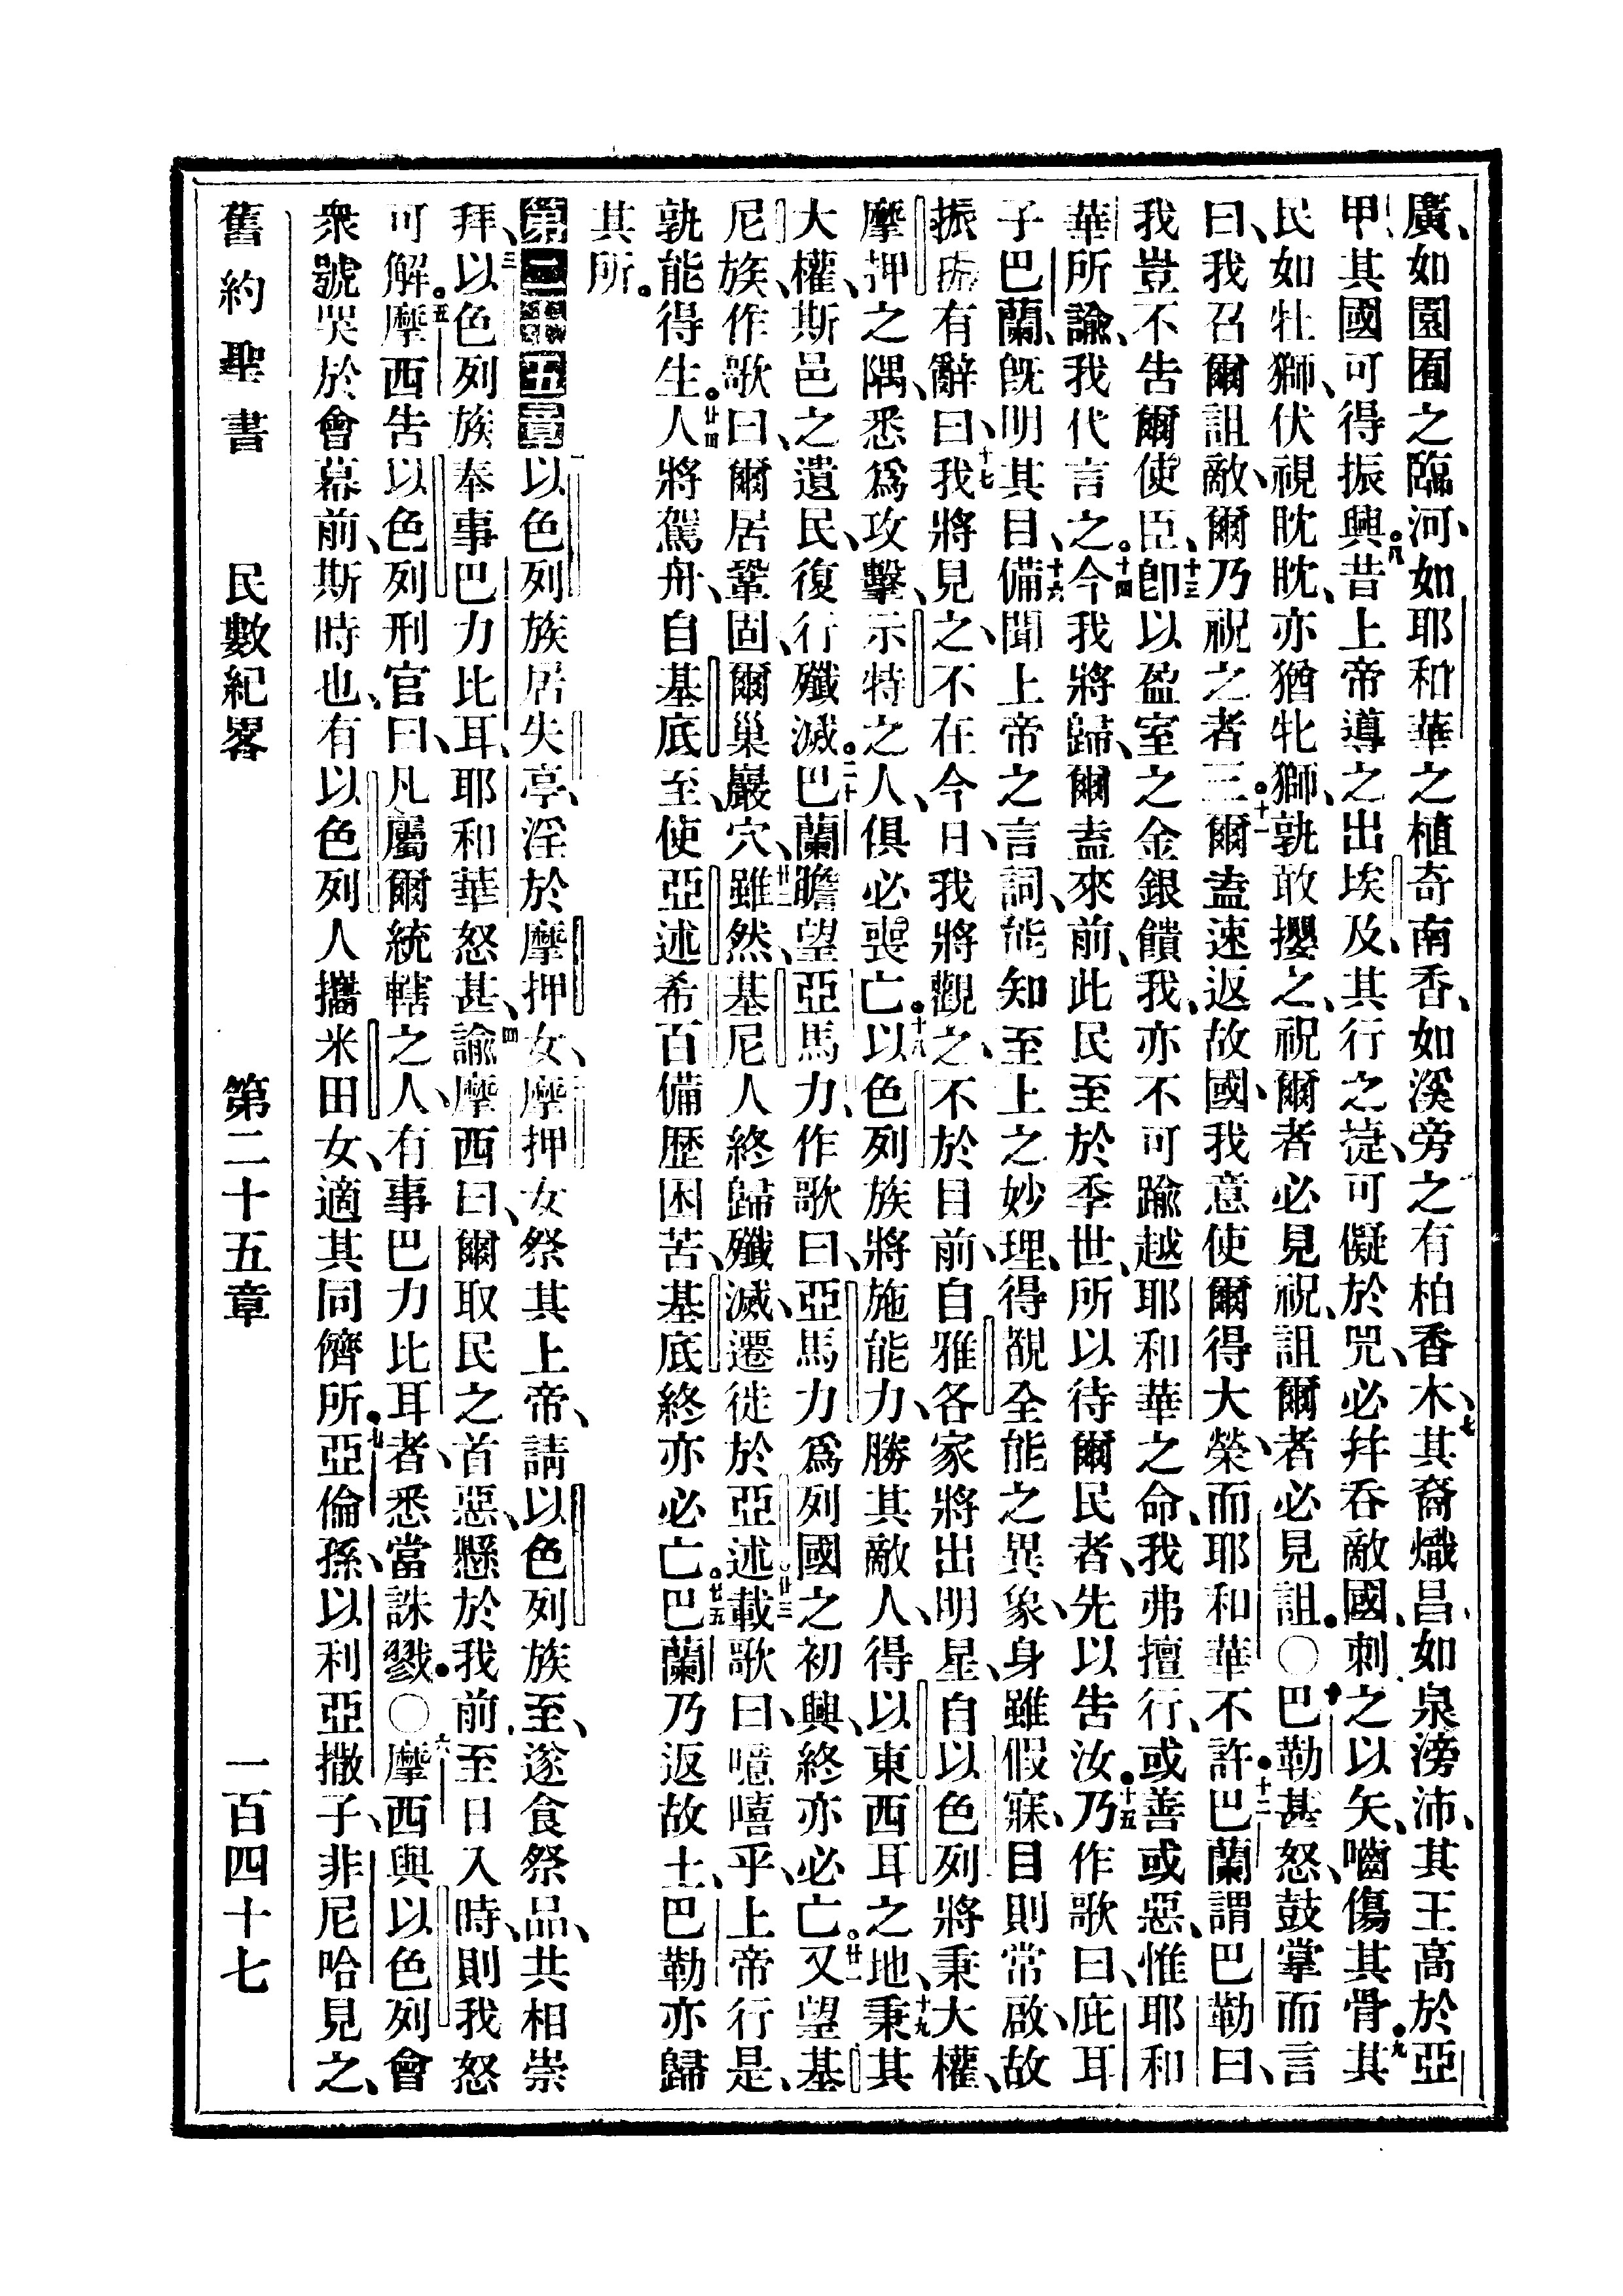 廣、如園囿之臨河、如耶和華之植奇南香、如溪旁之有柏香木、七其裔熾昌、如泉滂沛、其王高於亞
甲、其國可得振興。八昔上帝導之出埃及、其行之捷、可儗於兕、必幷吞敵國、刺之以矢、嚙傷其骨。九其
民如牡獅、伏視眈眈、亦猶牝獅、孰敢攖之、祝爾者必見祝、詛爾者必見詛。〇十巴勒甚怒、鼓掌而言
曰、我召爾詛敵、爾乃祝之者三。十一爾盍速返故國、我意使爾得大榮、而耶和華不許。十二巴蘭謂巴勒曰、
我豈不告爾使臣、十三卽以盈室之金銀饋我、亦不可踰越耶和華之命、我弗擅行、或善或惡、惟耶和
華所諭、我代言之。十四今我將歸、爾盍來前、此民至於季世、所以待爾民者、先以告汝。十五乃作歌曰、庇耳
子巴蘭、旣明其目、十六備聞上帝之言詞、能知至上之妙理、得覩全能之異象、身雖假寐、目則常啟、故
振振有辭曰、十七我將見之、不在今日、我將觀之、不於目前、自雅各家將出明星、自以色列將秉大權、
摩押之隅、悉爲攻擊、示特之人、俱必喪亡。十八以色列族將施能力、勝其敵人、得以東西耳之地、十九秉其
大權、斯邑之遺民、復行殲滅。二十巴蘭瞻望亞馬力、作歌曰、亞馬力爲列國之初興、終亦必亡。廿一又望基
尼族、作歌曰、爾居鞏固、爾巢巖穴、廿二雖然、基尼人終歸殲滅、遷徙於亞述、廿三載歌曰、噫嘻乎、上帝行是、
孰能得生。廿四人將駕舟、自基底至、使亞述希百備歷困苦、基底終亦必亡。廿五巴蘭乃返故土、巴勒亦歸
其所。
第二十五章一以色列族居失亭、淫於摩押女、二摩押女祭其上帝、請以色列族至、遂食祭品、共相崇
拜、三以色列族奉事巴力比耳、耶和華怒甚、四諭摩西曰、爾取民之首惡、懸於我前、至日入時、則我怒
可解。五摩西告以色列刑官曰、凡屬爾統轄之人、有事巴力比耳者、悉當誅戮。〇六摩西與以色列會
衆號哭於會幕前、斯時也、有以色列人攜米田女、適其同儕所。七亞倫孫、以利亞撒子、非尼哈見之、
舊約聖書　民數紀畧　第二十五章　一百四十七